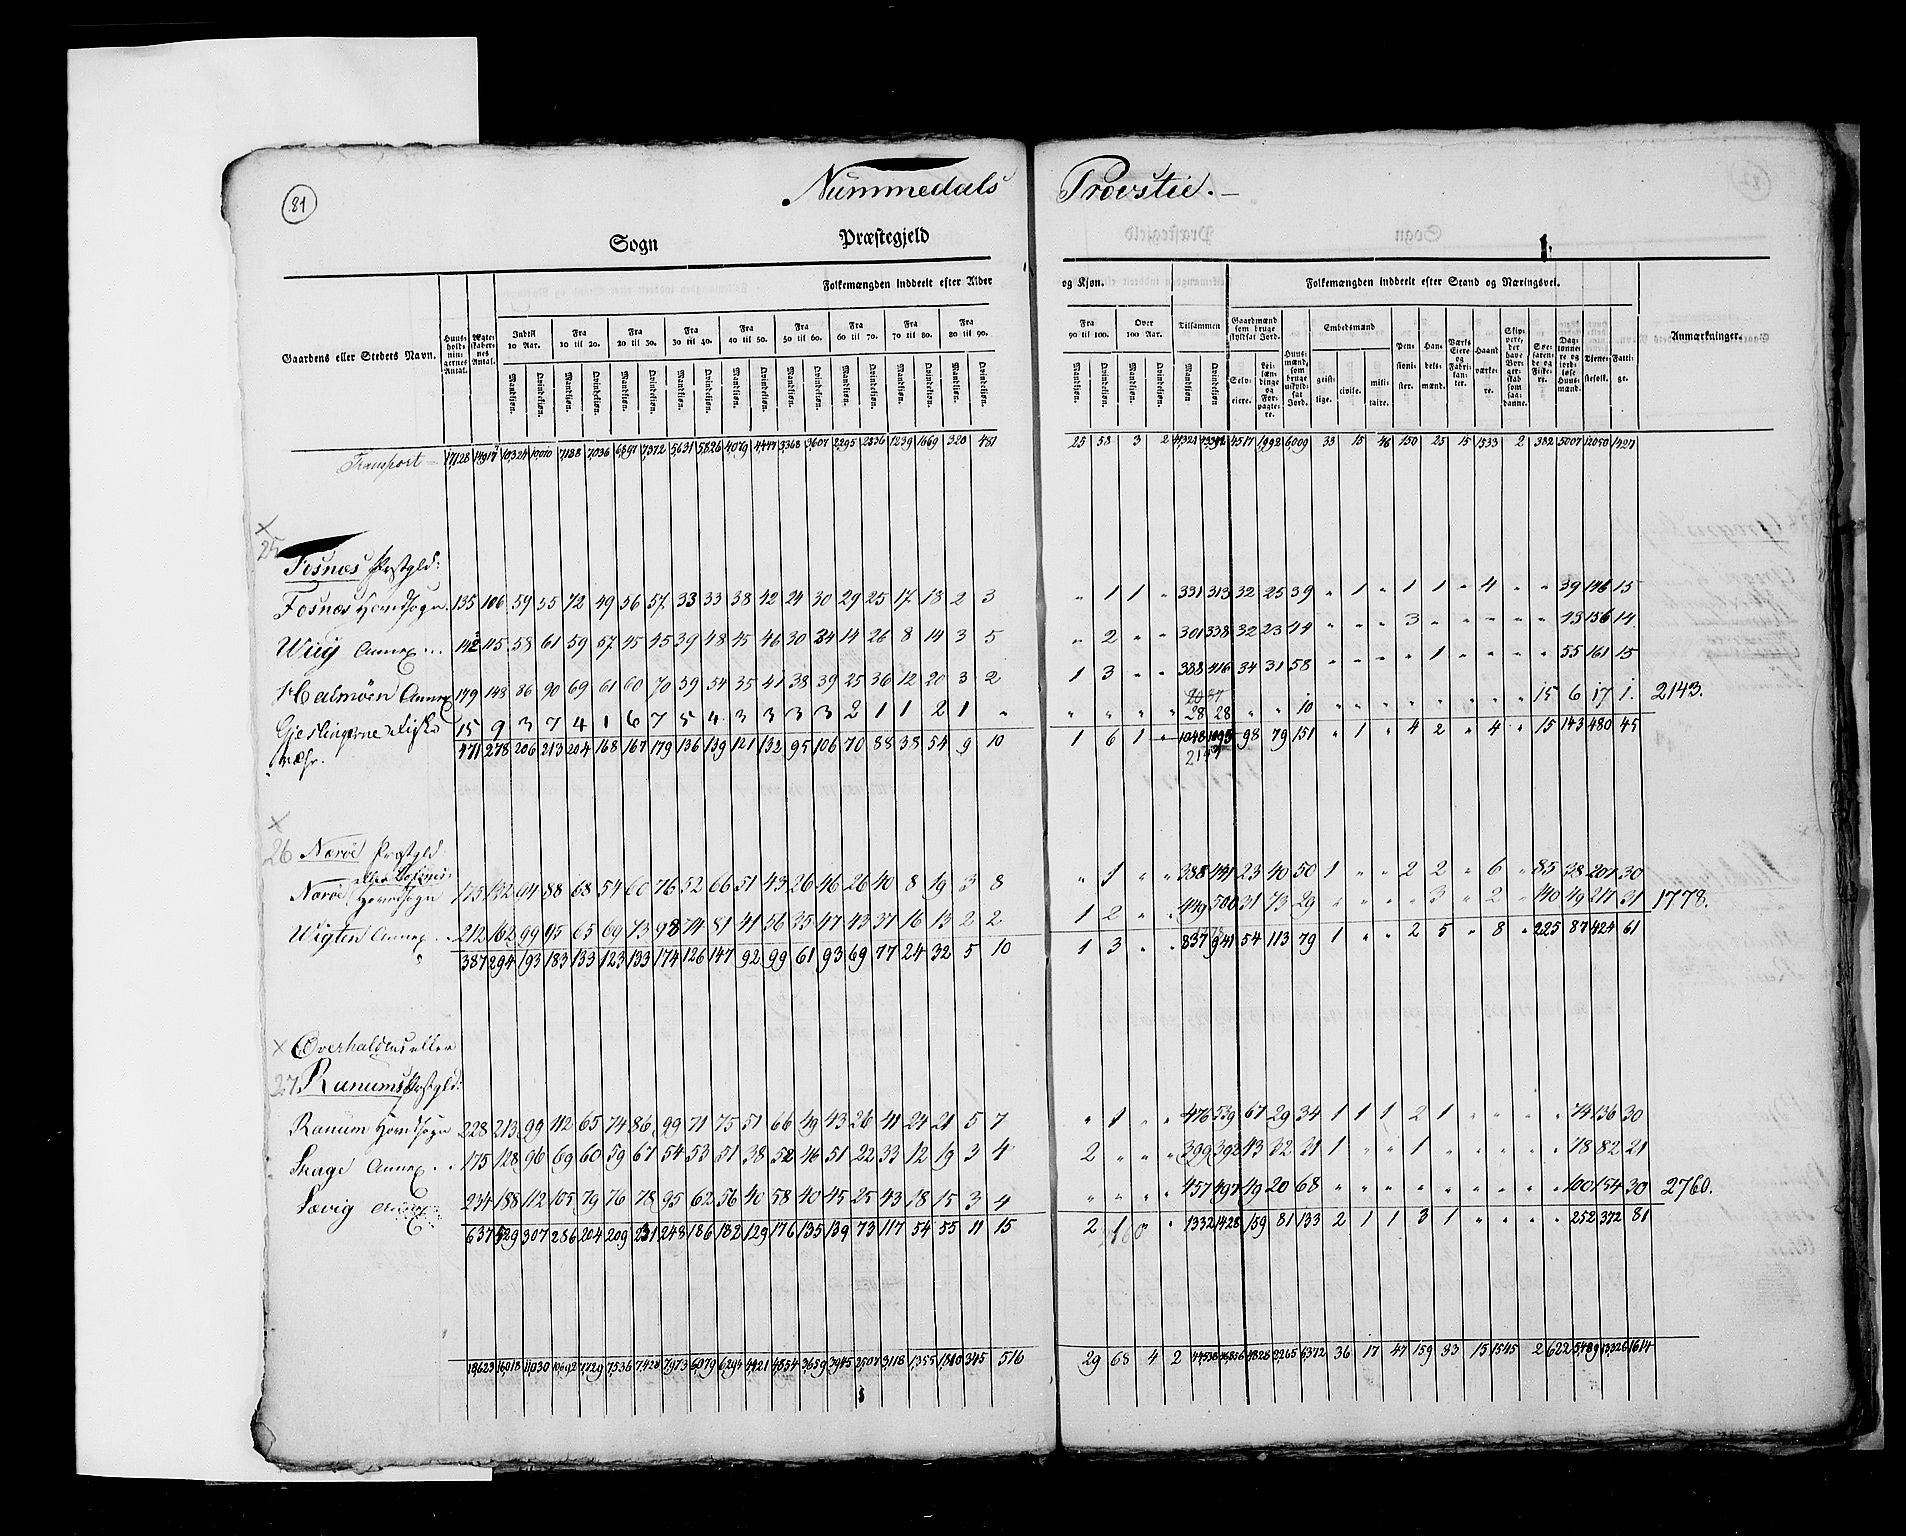 81
Nummedals Provstie.
Sogn Præstegjeld
Folkemængden inddeelt efter Alder og Kjøn.
Folkemængden inddeelt efter Stand og Næringsvei.
Gaardens eller Stedets Navn.
Huusholdningernes Antal.
Ægteskabernes Antal.
Indtil 10 Aar.
Fra 10 til 20.
Fra 20 til 30.
Fra 30 til 40.
Fra 40 til 50.
Fra 50 til 60.
Fra 60 til 70.
Fra 70 til 80.
Fra 80 til 90.
Fra 90 til 100.
Over 100 Aar.
Tilsammen
Gaardmænd som bruge skyldsat Jord.
Huusmænd, som bruge uskyldsat Jord.
Embedsmænd
Pensionister.
Handelsmænd.
Værks Eiere og Fabrikanter.
Haandværkere.
Skippere, der have Borgerskab som saadanne.
Søefarende og Fiskere.
Daglønnere og jordløse Huusmænd.
Tienestefolk.
Fattige.
Anmærkninger.
Mandkjøn. Qvindekjøn. Mandkjøn. Qvindekjøn. Mandkjøn. Qvindekjøn. Mandkjøn. Qvindekjøn. Mandkjøn. Qvindekjøn. Mandkjøn. Qvindekjøn. Mandkjøn. Qvindekjøn. Mandkjøn. Qvindekjøn. Mandkjøn. Qvindekjøn.
Mandkjøn. Qvindekjøn. Mandkjøn. Qvindekjøn. Mandkjøn. Qvindekjøn.
Selveiere. Leilændinge og Forpagtere. geistlige. civile. militaire.
Transport 17,128 10,324 7188 7,036 6,897 7,372 5,631 5,826 4,079 4,447 3,368 3,607 2,295 2,836 1,239 1,669 320 481 25 58 3 2 4,517 1,992 6,009 33 15 46 150 25 15 1533 2 382 5007 12050 1427
25
Fosnæs Præstgld:
Fosnæs Hovedsogn. 135 106 59 55 72 49 56 57 33 33 38 42 24 30 29 25 17 18 2 3 " 1 1 " 331 313 32 25 39 " 1 " 1 1 " 4 " " 39 146 15
Wiig Annex 142 115 58 61 59 57 45 45 39 48 45 46 30 34 14 26 8 14 3 5 " 2 " " 301 338 32 23 44 " " " 3 " " " " " 43 156 14
Halmøen Annex 179 148 86 90 69 61 60 70 59 54 35 41 38 39 25 36 12 20 3 2 1 3 " " 388 416 34 31 58 " " " " 1 " " " " 55 161 15
Gjeslingerne Fiskevær. 15 9 3 7 4 1 6 7 5 4 3 3 3 3 2 1 1 2 1 " " " " " 28 28 " " 10 " " " " " " " " 15 6 17 1. 2143.
471 278 206 213 204 168 167 179 136 139 121 132 95 106 70 88 38 54 9 10 1 6 1 " 1048 1095 98 79 151 " 1 " 4 2 " 4 " 15 143 480 45
26 Nærøe Præstgld.
Nærøe Hovedsogn 175 132 94 88 68 54 60 76 52 66 51 43 26 46 26 40 8 19 3 8 " 1 " " 388 441 23 40 50 1 " " 2 2 " 6 " 85 38 207 30
Wigten Annex 212 162 99 95 65 69 73 98 74 81 41 56 35 47 43 37 16 13 2 2 1 2 " " 449 500 31 73 29 " " " " 3 " 2 " 140 49 217 31 1778.
387 294 193 183 133 123 133 174 126 147 92 99 61 93 69 77 24 32 5 10 1 3 " " 837 941 54 113 79 1 " " 2 5 " 8 " 225 87 424 61
Overhaldens eller
27 Ranums Præstgld:
Ranum Hovedsogn 228 213 99 112 65 74 86 99 71 75 51 66 49 43 26 41 24 21 5 7 " 1 " " 476 539 67 29 34 1 1 1 2 1 " " " " 74 136 30
Skage Annex 175 128 96 69 60 59 67 54 53 51 38 52 46 51 22 33 12 19 3 4 2 " " " 399 392 43 32 31 1 " " 1 " " " " " 78 82 21
Lævig Annex 234 188 112 105 79 76 78 95 62 56 40 58 40 45 25 43 18 15 3 4 " " " " 457 497 49 20 68 " " " " " " " " " 100 154 30 2760.
637 529 307 286 204 209 231 248 186 182 129 176 135 139 73 117 54 55 11 15 2 1 " " 1332 1428 159 81 133 2 1 1 3 1 " " " " 252 372 81
18623 16018 11030 10692 7,729 7,536 7,428 7973 6,079 6294 4421 4854 3,659 3945 2507 3118 1,355 1810 345 516 29 68 4 2 4828 2,265 6,372 36 17 47 159 33 15 1545 2 622 5,489 13,326 1614